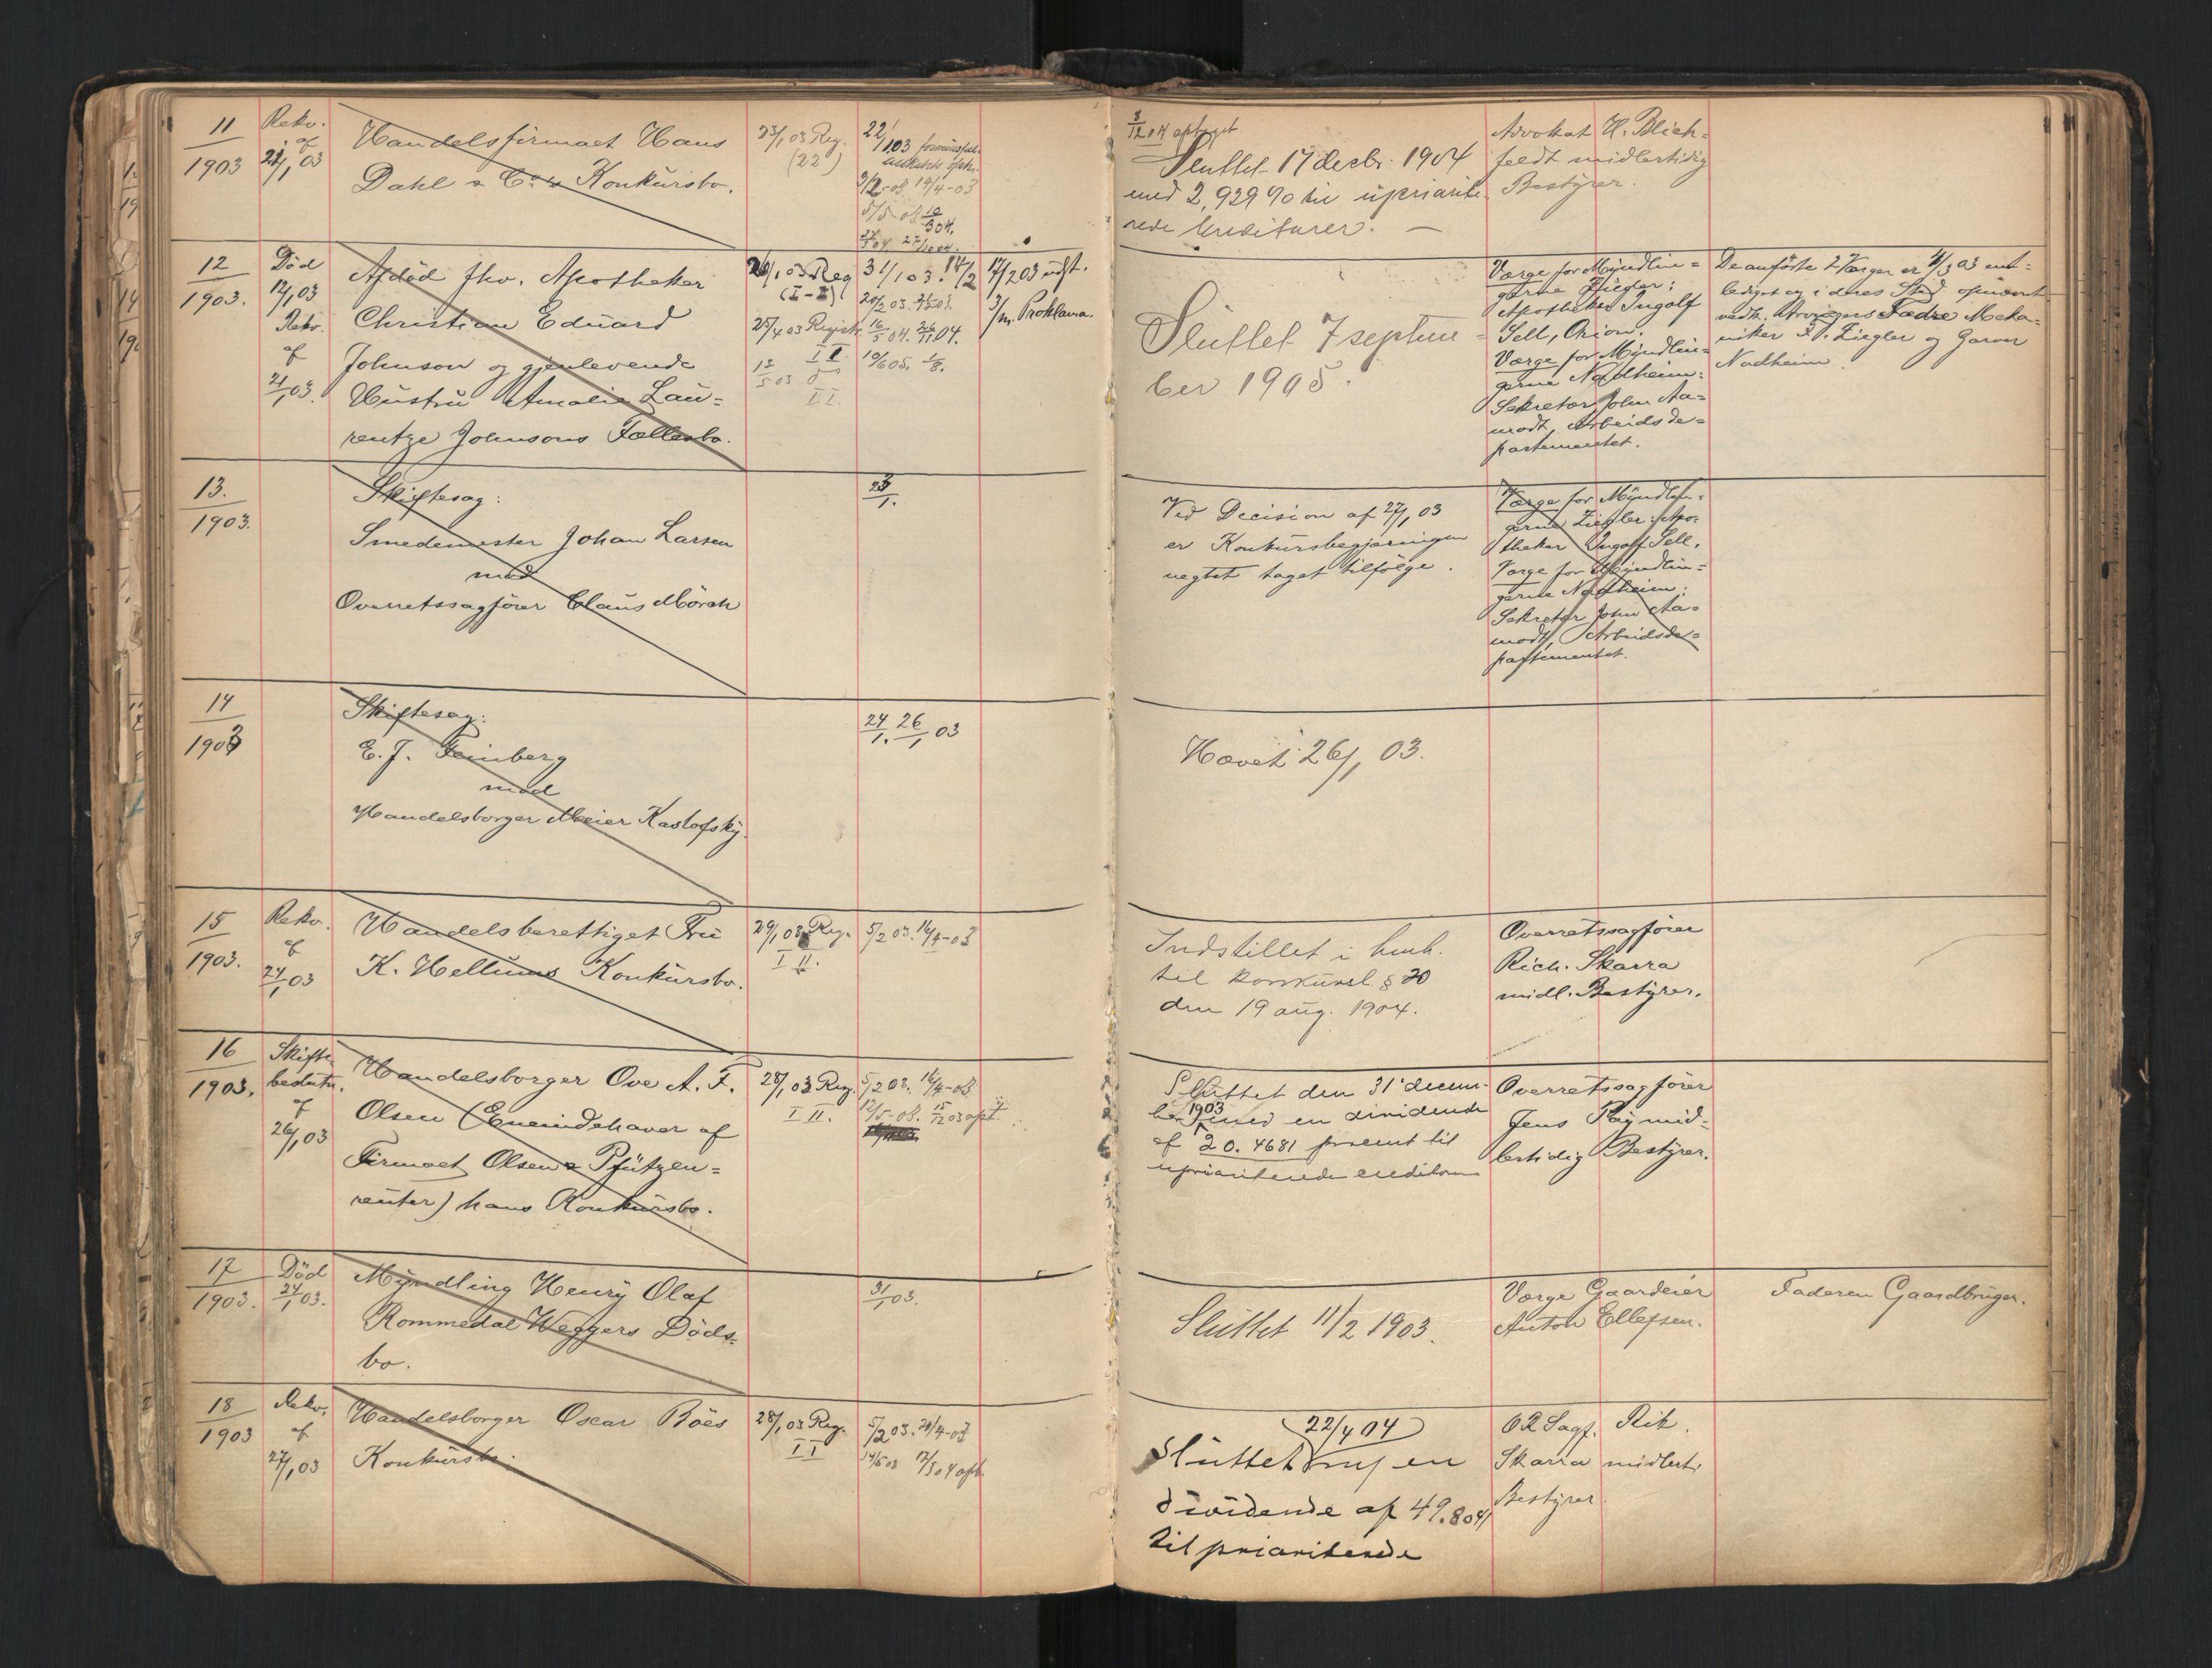 11
1903
Rekv.
af
21/1 03
Handelsfirmaet Hans
Dahl & Co's Konkursbo.
23/1 03 Reg.
(22)
22/1 03
3/2 03 14/4-03
5/5 03
17/2 04 optaget
Sluttet 17 decbr. 1904
med 2,929 % til upriorite-
rede kreditorer. —
Advokat H. Blich-
feldt midlertidig
Bestyrer.
12
1903.
Död
12/1 03
Rekv.
af
21/1 03.
Afdöd fhv. Apotheker
Christian Eduard
Johnson og gjenlevende
Hustru Amalie Lau=
rentze Johnsons Fællesbo.
26/1 03 Reg
(I-II)
25/4 03 Registr.
I II
12/5 03
II
31/1 03. 14/2
20/2 03.
16/5 04. 26/11 04.
10/6 05. 1/8.
17/2 03 udst.
3/m. Proklama.
Sluttet 7 septem=
ber 1905.
Værge for Myndlin=
gerne Ziegler:
Apotheker Ingolf
Sell, Orion.
Værge for Myndlin=
gerne Nadheim:
Sekretær John Aa=
modt, Arbeidsde=
partementet.
De anförte 2 Værger er 4/3 03 ent=
lediget og i deres Sted opnævnt
vedk. Arvingers Fædre Meka=
niker F. Ziegler og Garver
Nadheim.
13.
1903.
Skiftesag:
Smedemester Johan Larsen
mod
Overretssagförer Claus Mörch
23/1.
Ved Decision af 27/1 03
er Konkursbegjæringen
negtet taget tilfölge.
Værge for Myndlin=
gerne Ziegler: Apo-
theker Ingolf Sell,
Værge for Myndlin=
gerne Nadheim:
Sekretær John Aa=
modt, Arbeidsde=
partementet.
14
1903
Skiftesag:
E. J. Feinberg
mod
Handelsborger Meier Kaslofsky.
24/1. 26/1 03
Hævet 26/1 03.
15
1903.
Rekv.
af
24/1 03
Handelsberettiget Fru
K. Hellums Konkursbo.
29/1 03 Reg.
I II.
5/2 03. 16/4-03
Indstillet i henh.
til konkursl. § 20
den 19 aug. 1904.
Overretssagförer
Rich. Skarra
midl. Bestyrer.
16
1903.
Skifte
beslutn.
af
26/1 03
Handelsborger Ove A. F.
Olsen (Eneindehaver af
Firmaet Olsen & Pfützen=
reuter) hans Konkursbo.
28/1 03 Reg.
I II.
5/2 03. 16/4-03
12/5-03. 15/12 03 opt.
Sluttet den 31' decem-
ber 1903 med en dividende
af 20.4681 procent til
uprioriterede creditorer
Overretssagförer
Jens Pay mid=
lertidig Bestyrer.
17
1903.
Död
24/1 03.
Myndling Henry Olaf
Rommedal Weggers Döds-
bo.
31/1 03.
Sluttet 11/2 1903.
Værge Gaardeier
Anton Ellefsen.
Faderen Gaardbruger.
18
1903
Rekv.
af
27/1 03
Handelsborger Oscar Böes
Konkursbo.
28/1 03 Reg.
I I
5/2 03. 20/4-03
14/5 03 12/3 04 opt.
22/4 04
Sluttet en
dividende af 49.804
til prioriterede
OR Sagf. Rik.
Skarra midlert.
Bestyrer.